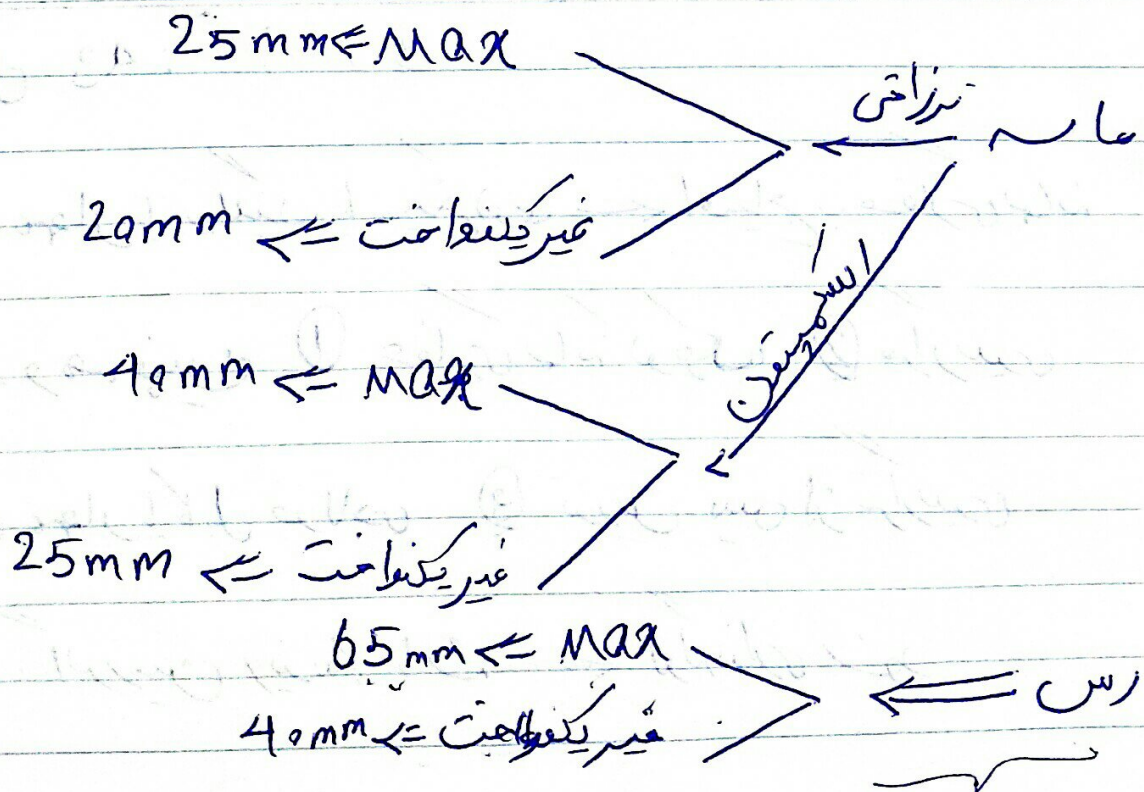 25mm ⇐ MAX
ماسه ← نرزاقی
20mm ⇐ غیر یکنواخت
اسکمپتون
40mm ⇐ MAX
25mm ⇐ غیر یکنواخت
65mm ⇐ MAX
رس ⇐
40mm ⇐ غیر یکنواخت